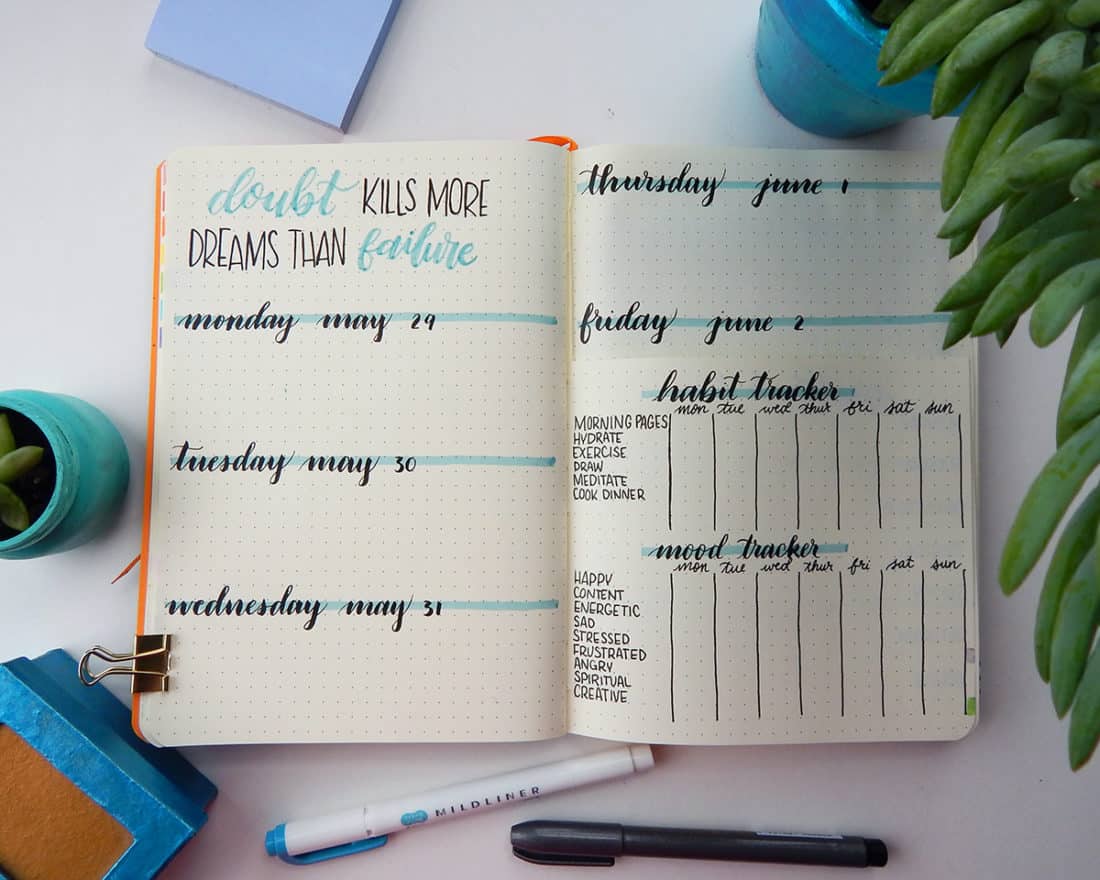 doubt KILLS MORE
DREAMS THAN failure
monday may 29
tuesday may 30
wednesday may 31
thursday june 1
friday june 2
habit tracker
mon tue wed thur fri sat sun
MORNING PAGES
HYDRATE
EXERCISE
DRAW
MEDITATE
COOK DINNER
mood tracker
mon tue wed thur fri sat sun
HAPPY
CONTENT
ENERGETIC
SAD
STRESSED
FRUSTRATED
ANGRY
SPIRITUAL
CREATIVE
MILDLINER